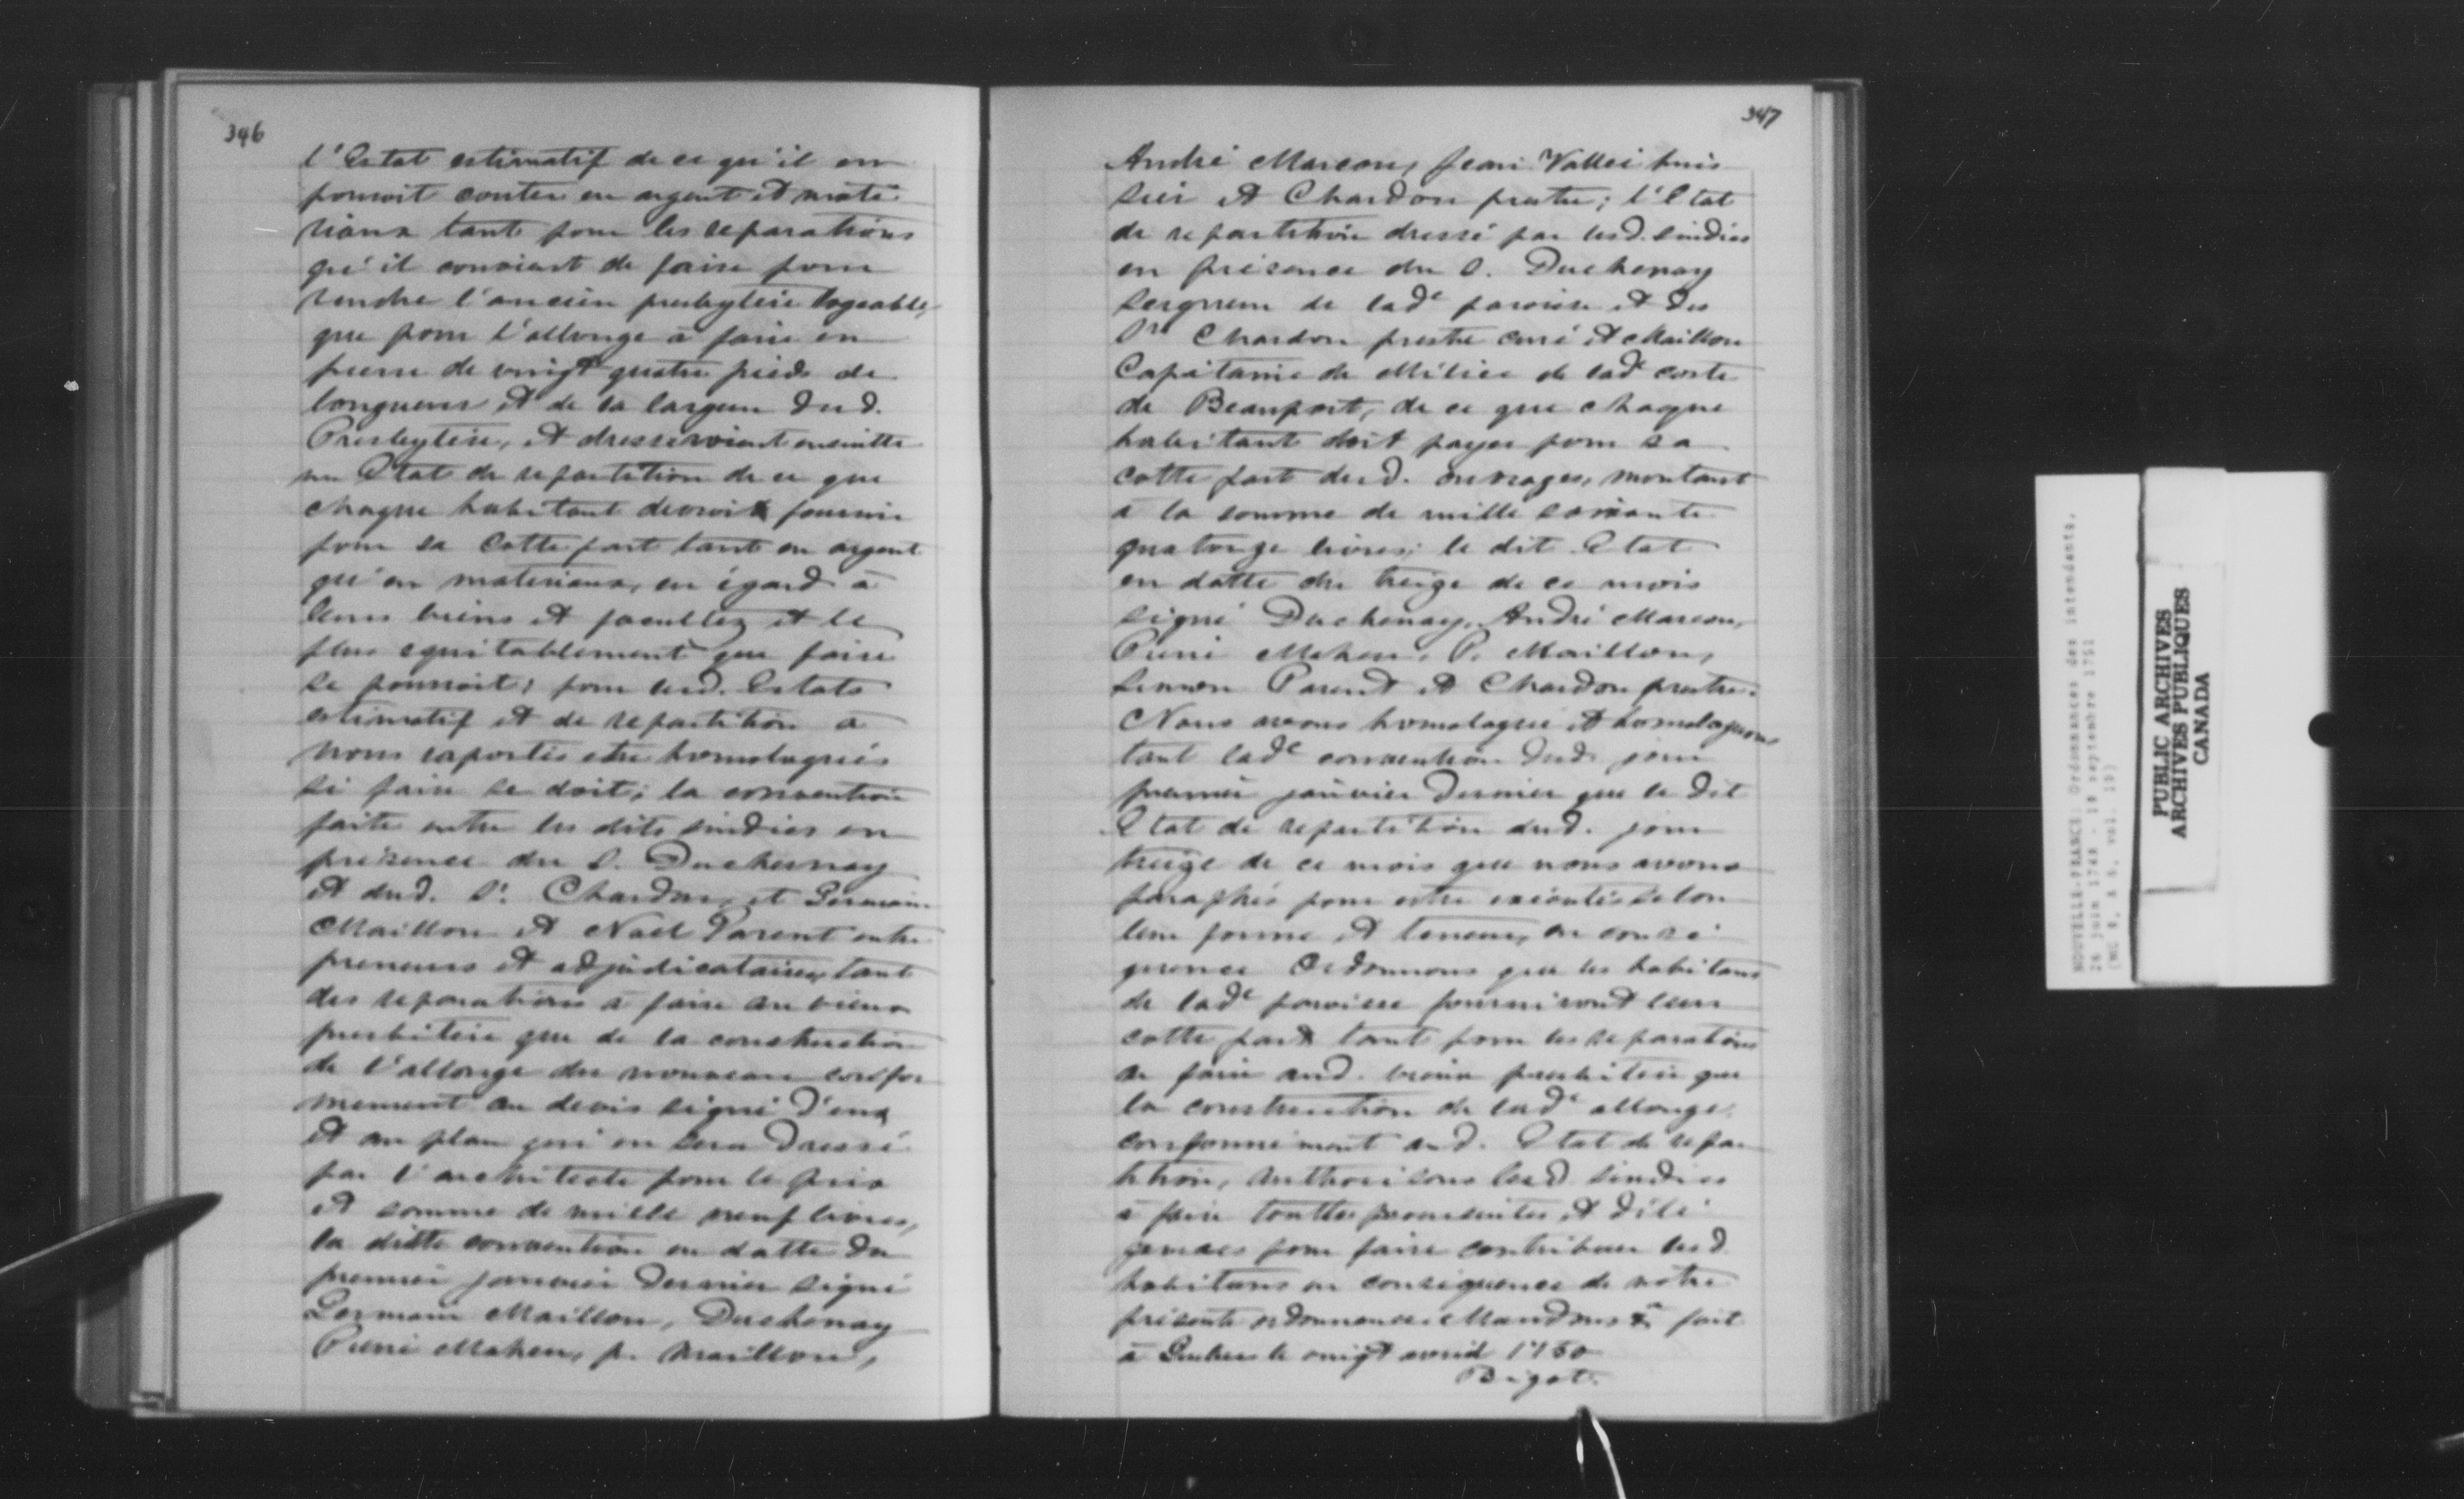 346
l'Estat estimatif de ce qu'il en
pouroit couter en argent et maté
riaux tant pour les reparations
qu'il convient de faire pour
rendre l'ancien presbyteire logeable,
que pour l'allonge à faire en
pierre de vingt quatre pieds de
longueur et de la largeur dud.
Presbyteire, et dresseroient ensuitte
un Etat de repartition de ce que
chaque habitant devroit fournir
pour sa cotte part tant en argent
qu'en materiaux, eu égard à
leurs biens et facultez et le
plus equitablement que faire
se pourroit; pour lesd. Estats
estimatif et de repartition à
nous raportés etre homologués
si faire se doit; la convention
faite entre les dits sindics en
présence du S. Duchesnay
et dud. Sr. Chardon, et Germain
Maillou et Noel Parent entre
preneurs et adjudicataires, tant
des reparations à faire au vieux
presbiteire que de la construction
de l'allonge du nouveau confor
mement au devis signé d'eux
et au plan qui en sera dressé
par l'architecte pour le prix
et somme de mille neuf livres,
la ditte convention en datte du
premier janvier dernier signé
Germain Maillou, Duchenay
Pierre Maheu, p. Maillou,
347
André Marcou, Jean Vallée huis
sier et Chardon prestre; l'Etat
de repartition dressé par lesd. sindics
en présence du S. Duchenay
seigneur de lade paroisse et des
Srs Chardon prestre curé et Maillou
Capitaine de Milice de lade coste
de Beauport, de ce que chaque
habitant doit payer pour sa
cotte part desd. ouvrages, montant
à la somme de mille soixante
quatorze livres; le dit Etat
en datte du treize de ce mois
signé Duchenay, André Marcou,
Pierre Maheu, P. Maillou,
Parent et Chardon prestre.
Nous avons homologué et homologuons
tant lade convention dud. jour
premier janvier dernier que le dit
Etat de repartition dud. jour
treize de ce mois que nous avons
paraphés pour estre exécutés selon
leur forme et teneur, en consé
quence Ordonnons que les habitans
de lade paroisse fourniront leur
cotte part tant pour les reparations
a faire aud. vieux presbiteire que
la construction de lade allonge
conformément aud. Etat de repar
tition, authorisons lesd sindics
à faire touttes poursuites et dili
gences pour faire contribuer lesd
habitans en consequence de notre
présente ordonnance. Mandons &a fait
à Quebec le vingt avril 1750
Bigot.
NOUVELLE-FRANCE: Ordonnances des intendants.
26 juin 1748 - 18 septembre 1751
PUBLIC ARCHIVES
ARCHIVES PUBLIQUES
CANADA